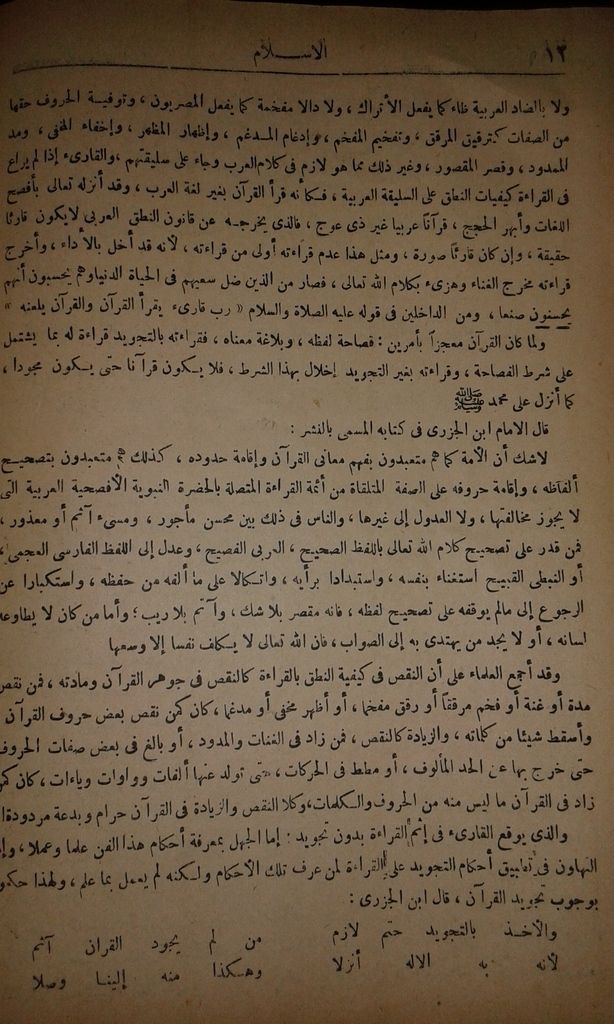 ١٢
الاسلام
ولا بالضاد العربية ظاء كما يفعل الأتراك ، ولا دالا مفخمة كما يفعل المصريون ، وتوفية الحروف حقها
من الصفات كترقيق المرقق ، وتفخيم المفخم ، وإدغام المدغم ، وإظهار المظهر ، وإخفاء المخفى ، ومد
الممدود ، وقصر المقصور ، وغير ذلك مما هو لازم فى كلام العرب وجاء على سليقتهم ، والقارىء إذا لم يراع
فى القراءة كيفيات النطق على السليقة العربية ، فكأنه قرأ القرآن بغير لغة العرب ، وقد أنزله تعالى بأفصح
اللغات وأبهر الحجج ، قرآنا عربيا غير ذى عوج ، فالذى يخرجه عن قانون النطق العربى لا يكون قارئا
حقيقة ، وإن كان قارئا صورة ، ومثل هذا عدم قراءته أولى من قراءته ، لأنه قد أخل بالأداء ، وأخرج
قراءته مخرج الغناء وهزىء بكلام الله تعالى ، فصار من الذين ضل سعيهم فى الحياة الدنيا وهم يحسبون أنهم
يحسنون صنعا ، ومن الداخلين فى قوله عليه الصلاة والسلام « رب قارىء يقرأ القرآن والقرآن يلعنه »
ولما كان القرآن معجزاً بأمرين : فصاحة لفظه ، وبلاغة معناه ، فقراءته بالتجويد قراءة له بما يشتمل
على شرط الفصاحة ، وقراءته بغير التجويد إخلال بهذا الشرط ، فلا يكون قرآنا حتى يكون مجودا ،
كما أنزل على محمد ﷺ
قال الامام ابن الجزرى فى كتابه المسمى بالنشر :
لاشك أن الأمة كما هم متعبدون بفهم معانى القرآن وإقامة حدوده ، كذلك هم متعبدون بتصحيح
ألفاظه ، وإقامة حروفه على الصفة المتلقاة من أئمة القراءة المتصلة بالحضرة النبوية الأفصحية العربية التى
لا يجوز مخالفتها ، ولا العدول إلى غيرها ، والناس فى ذلك بين محسن مأجور ، ومسىء آثم أو معذور ،
فمن قدر على تصحيح كلام الله تعالى باللفظ الصحيح ، العربى الفصيح ، وعدل إلى اللفظ الفارسى العجمى ،
أو النبطى القبيح استغناء بنفسه ، واستبدادا برأيه ، واتكالا على ما ألفه من حفظه ، واستكبارا عن
الرجوع إلى مالم يوقفه على تصحيح لفظه ، فانه مقصر بلا شك ، وآثم بلا ريب ؛ وأما من كان لا يطاوعه
لسانه ، أو لا يجد من يهتدى به إلى الصواب ، فان الله تعالى لا يكلف نفسا إلا وسعها
وقد أجمع العلماء على أن النقص فى كيفية النطق بالقراءة كالنقص فى جوهر القرآن ومادته ، فمن نقص
مدة أو غنة أو فخم مرققاً أو رقق مفخما ، أو أظهر مخفى أو مدغما ، كان كمن نقص بعض حروف القرآن
وأسقط شيئا من كلماته ، والزيادة كالنقص ، فمن زاد فى الغنات والمدود ، أو بالغ فى بعض صفات الحروف
حتى خرج بها عن الحد المألوف ، أو مطط فى الحركات ، حتى تولد عنها ألفات وواوات وياءات ، كان
زاد فى القرآن ما ليس منه من الحروف والكلمات، وكلا النقص والزيادة فى القرآن حرام وبدعة مردودة
والذى يوقع القارىء فى إثم القراءة بدون تجويد : إما الجهل بمعرفة أحكام هذا الفن علما وعملا ،
التهاون فى تطبيق أحكام التجويد على القراءة لمن عرف تلك الأحكام ولكنه لم يعمل بما علم ، ولهذا
بوجوب تجويد القرآن ، قال ابن الجزرى :
والأخذ بالتجويد حتم لازم من لم يجود القران آثم
لأنه به الاله أنزلا وهكذا منه إلينا وصلا